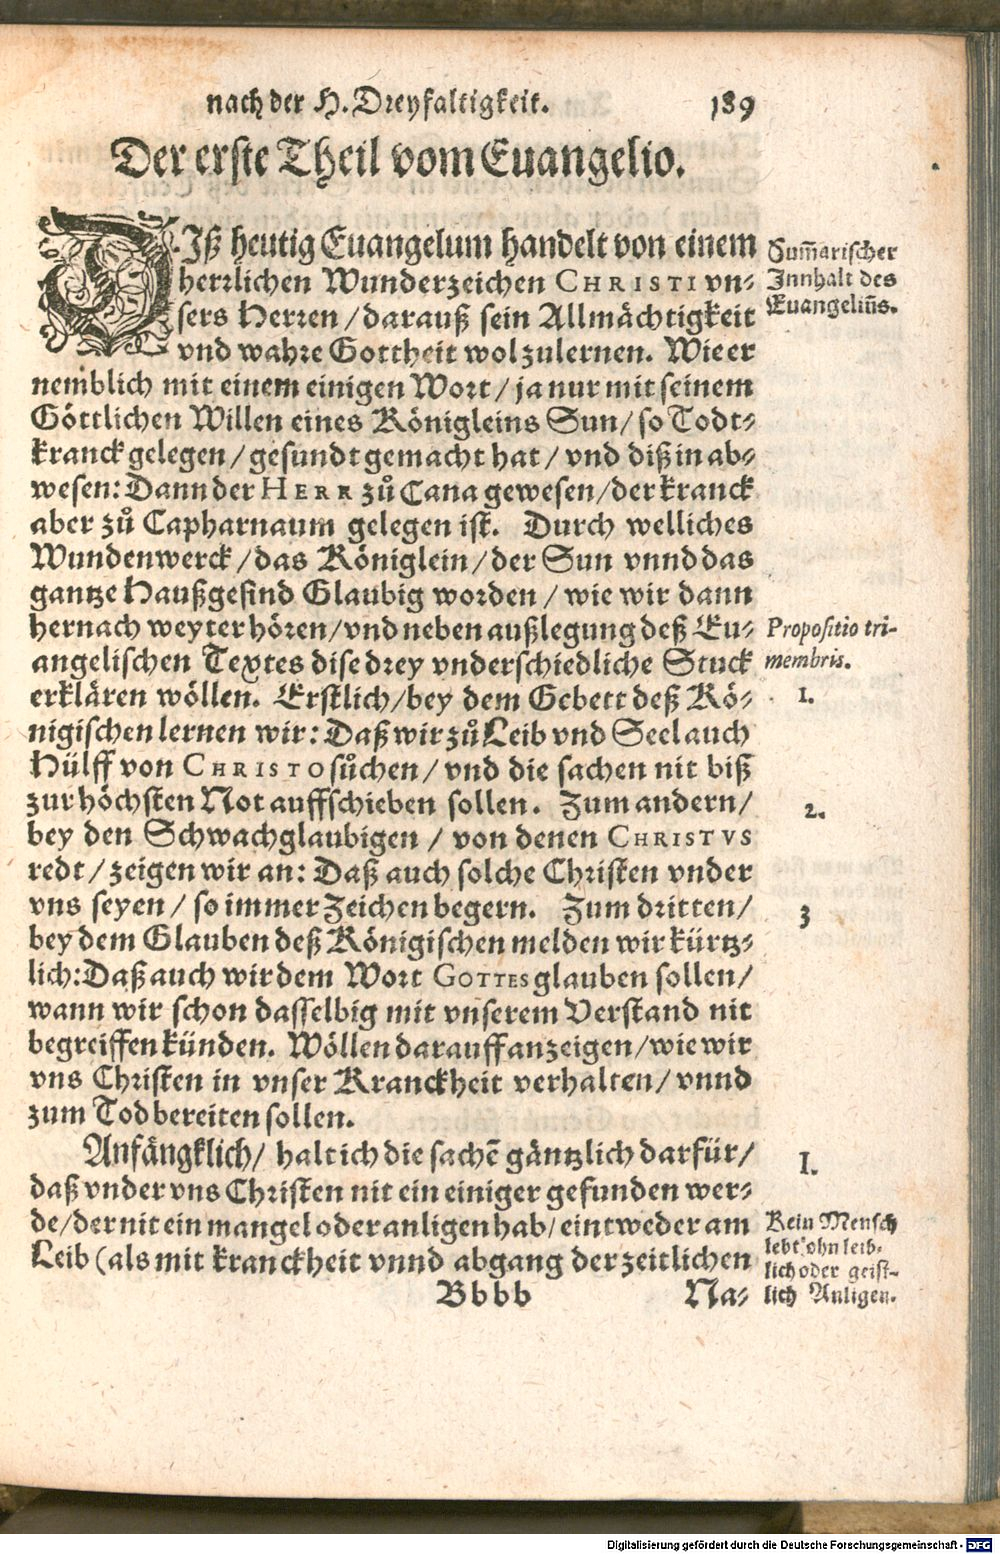 nach der H. Dreyfaltigkeit. 189
Der erste Theil vom Euangelio.
DIß heutig Euangelum handelt von einem
herrlichen Wunderzeichen CHRISTI vn-
sers Herren / darauß sein Allmächtigkeit
vnd wahre Gottheit wol zulernen. Wie er
nemblich mit einem einigen Wort / ja nur mit seinem
Göttlichen Willen eines Königleins Sun / so Todt-
kranck gelegen / gesundt gemacht hat / vnd diß in ab-
wesen: Dann der HERR zů Cana gewesen / der kranck
aber zů Capharnaum gelegen ist. Durch welliches
Wundenwerck / das Königlein / der Sun vnnd das
gantze Haußgesind Glaubig worden / wie wir dann
hernach weyter hören / vnd neben außlegung deß Eu-
angelischen Textes dise drey vnderschiedliche Stuck
erklären wöllen. Erstlich / bey dem Gebett deß Kö-
nigischen lernen wir: Daß wir zů Leib vnd Seel auch
Hülff von CHRISTO sůchen / vnd die sachen nit biß
zur höchsten Not auffschieben sollen. Zum andern /
bey den Schwachglaubigen / von denen CHRISTVS
redt / zeigen wir an: Daß auch solche Christen vnder
vns seyen / so immer Zeichen begern. Zum dritten /
bey dem Glauben deß Königischen melden wir kürtz-
lich: Daß auch wir dem Wort GOTTES glauben sollen /
wann wir schon dasselbig mit vnserem Verstand nit
begreiffen künden. Wöllen darauff anzeigen / wie wir
vns Christen in vnser Kranckheit verhalten / vnnd
zum Tod bereiten sollen.
Anfängklich / halt ich die sachē gäntzlich darfür /
daß vnder vns Christen nit ein einiger gefunden wer-
de / der nit ein mangel oder anligen hab / eintweder am
Leib (als mit kranckheit vnnd abgang der zeitlichen
Bbbb Na-
Sum̃arischer
Innhalt des
Euangeliũs.
Propositio tri-
membris.
1.
2.
3
I.
Kein Mensch
lebt ohn leib-
lich oder geist-
lich Anligen.
Digitalisierung gefördert durch die Deutsche Forschungsgemeinschaft - DFG